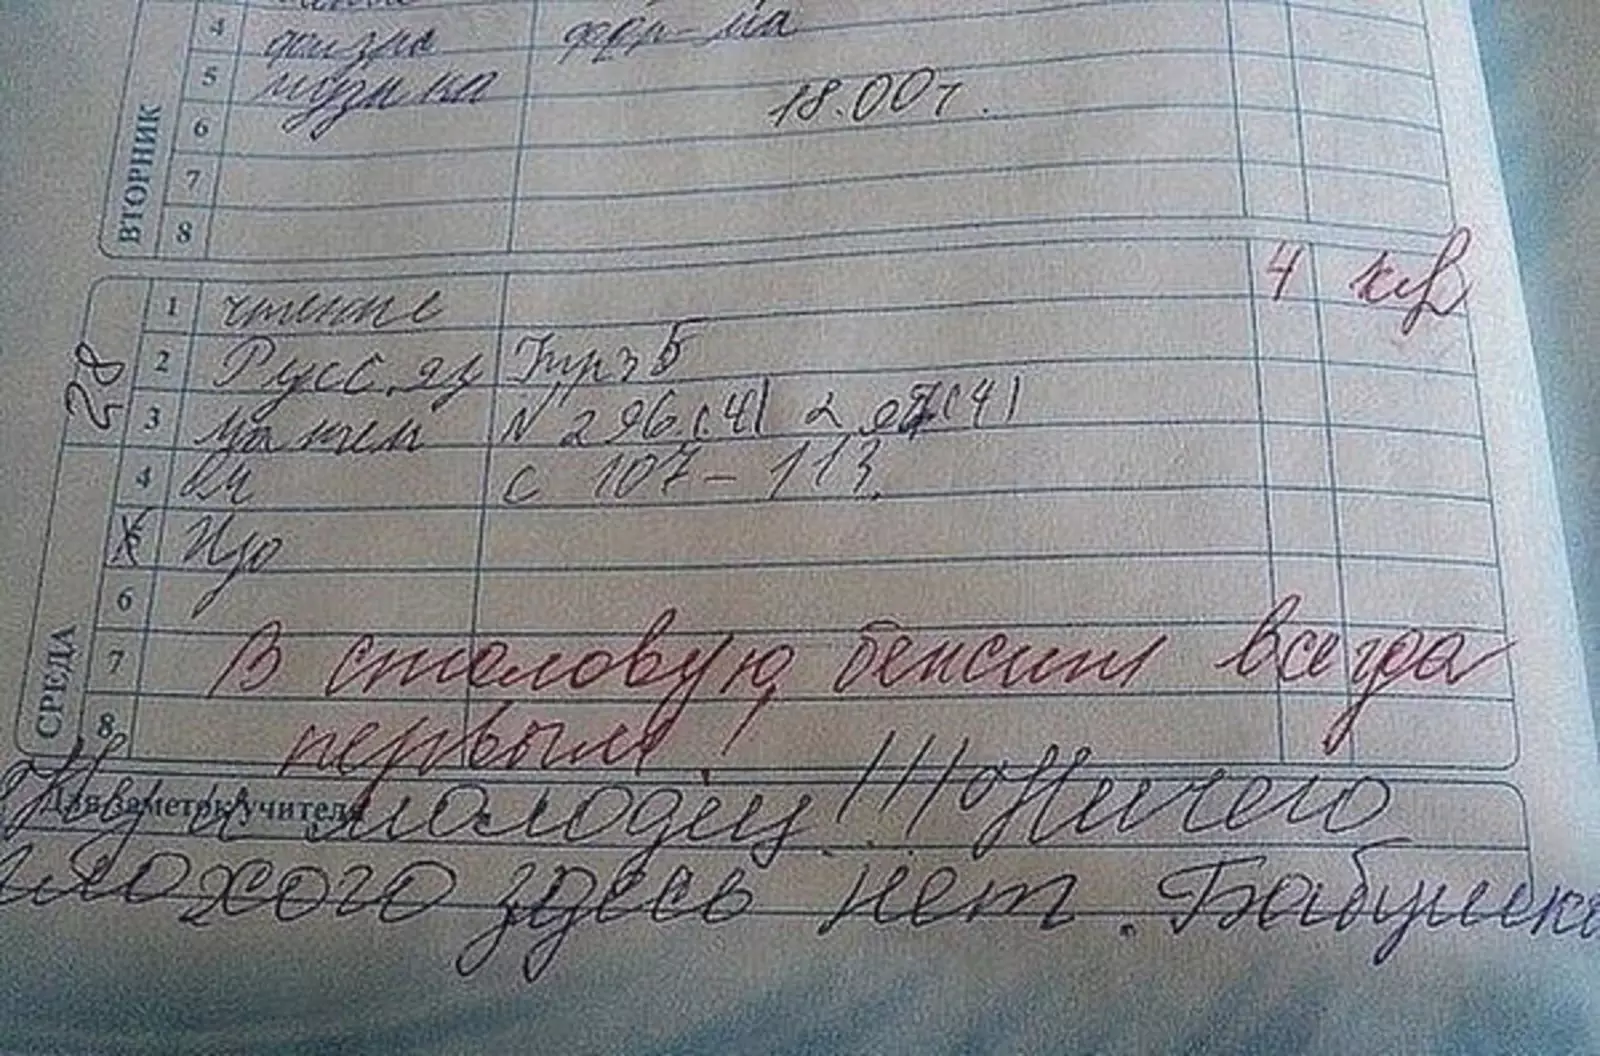 4 физра фор-ма
5 музыка
18.00 г.
6
7
8
ВТОРНИК
28
1 чтение 4
2 Русс.яз Упр 5
3 матем N 296(4) 297(4)
4 с 107-113.
5 Изо
6
7 В столовую бежит всегда
8 первым!
СРЕДА
Для заметок учителя
Ну и молодец!!! Ничего
плохого здесь нет. Бабушка